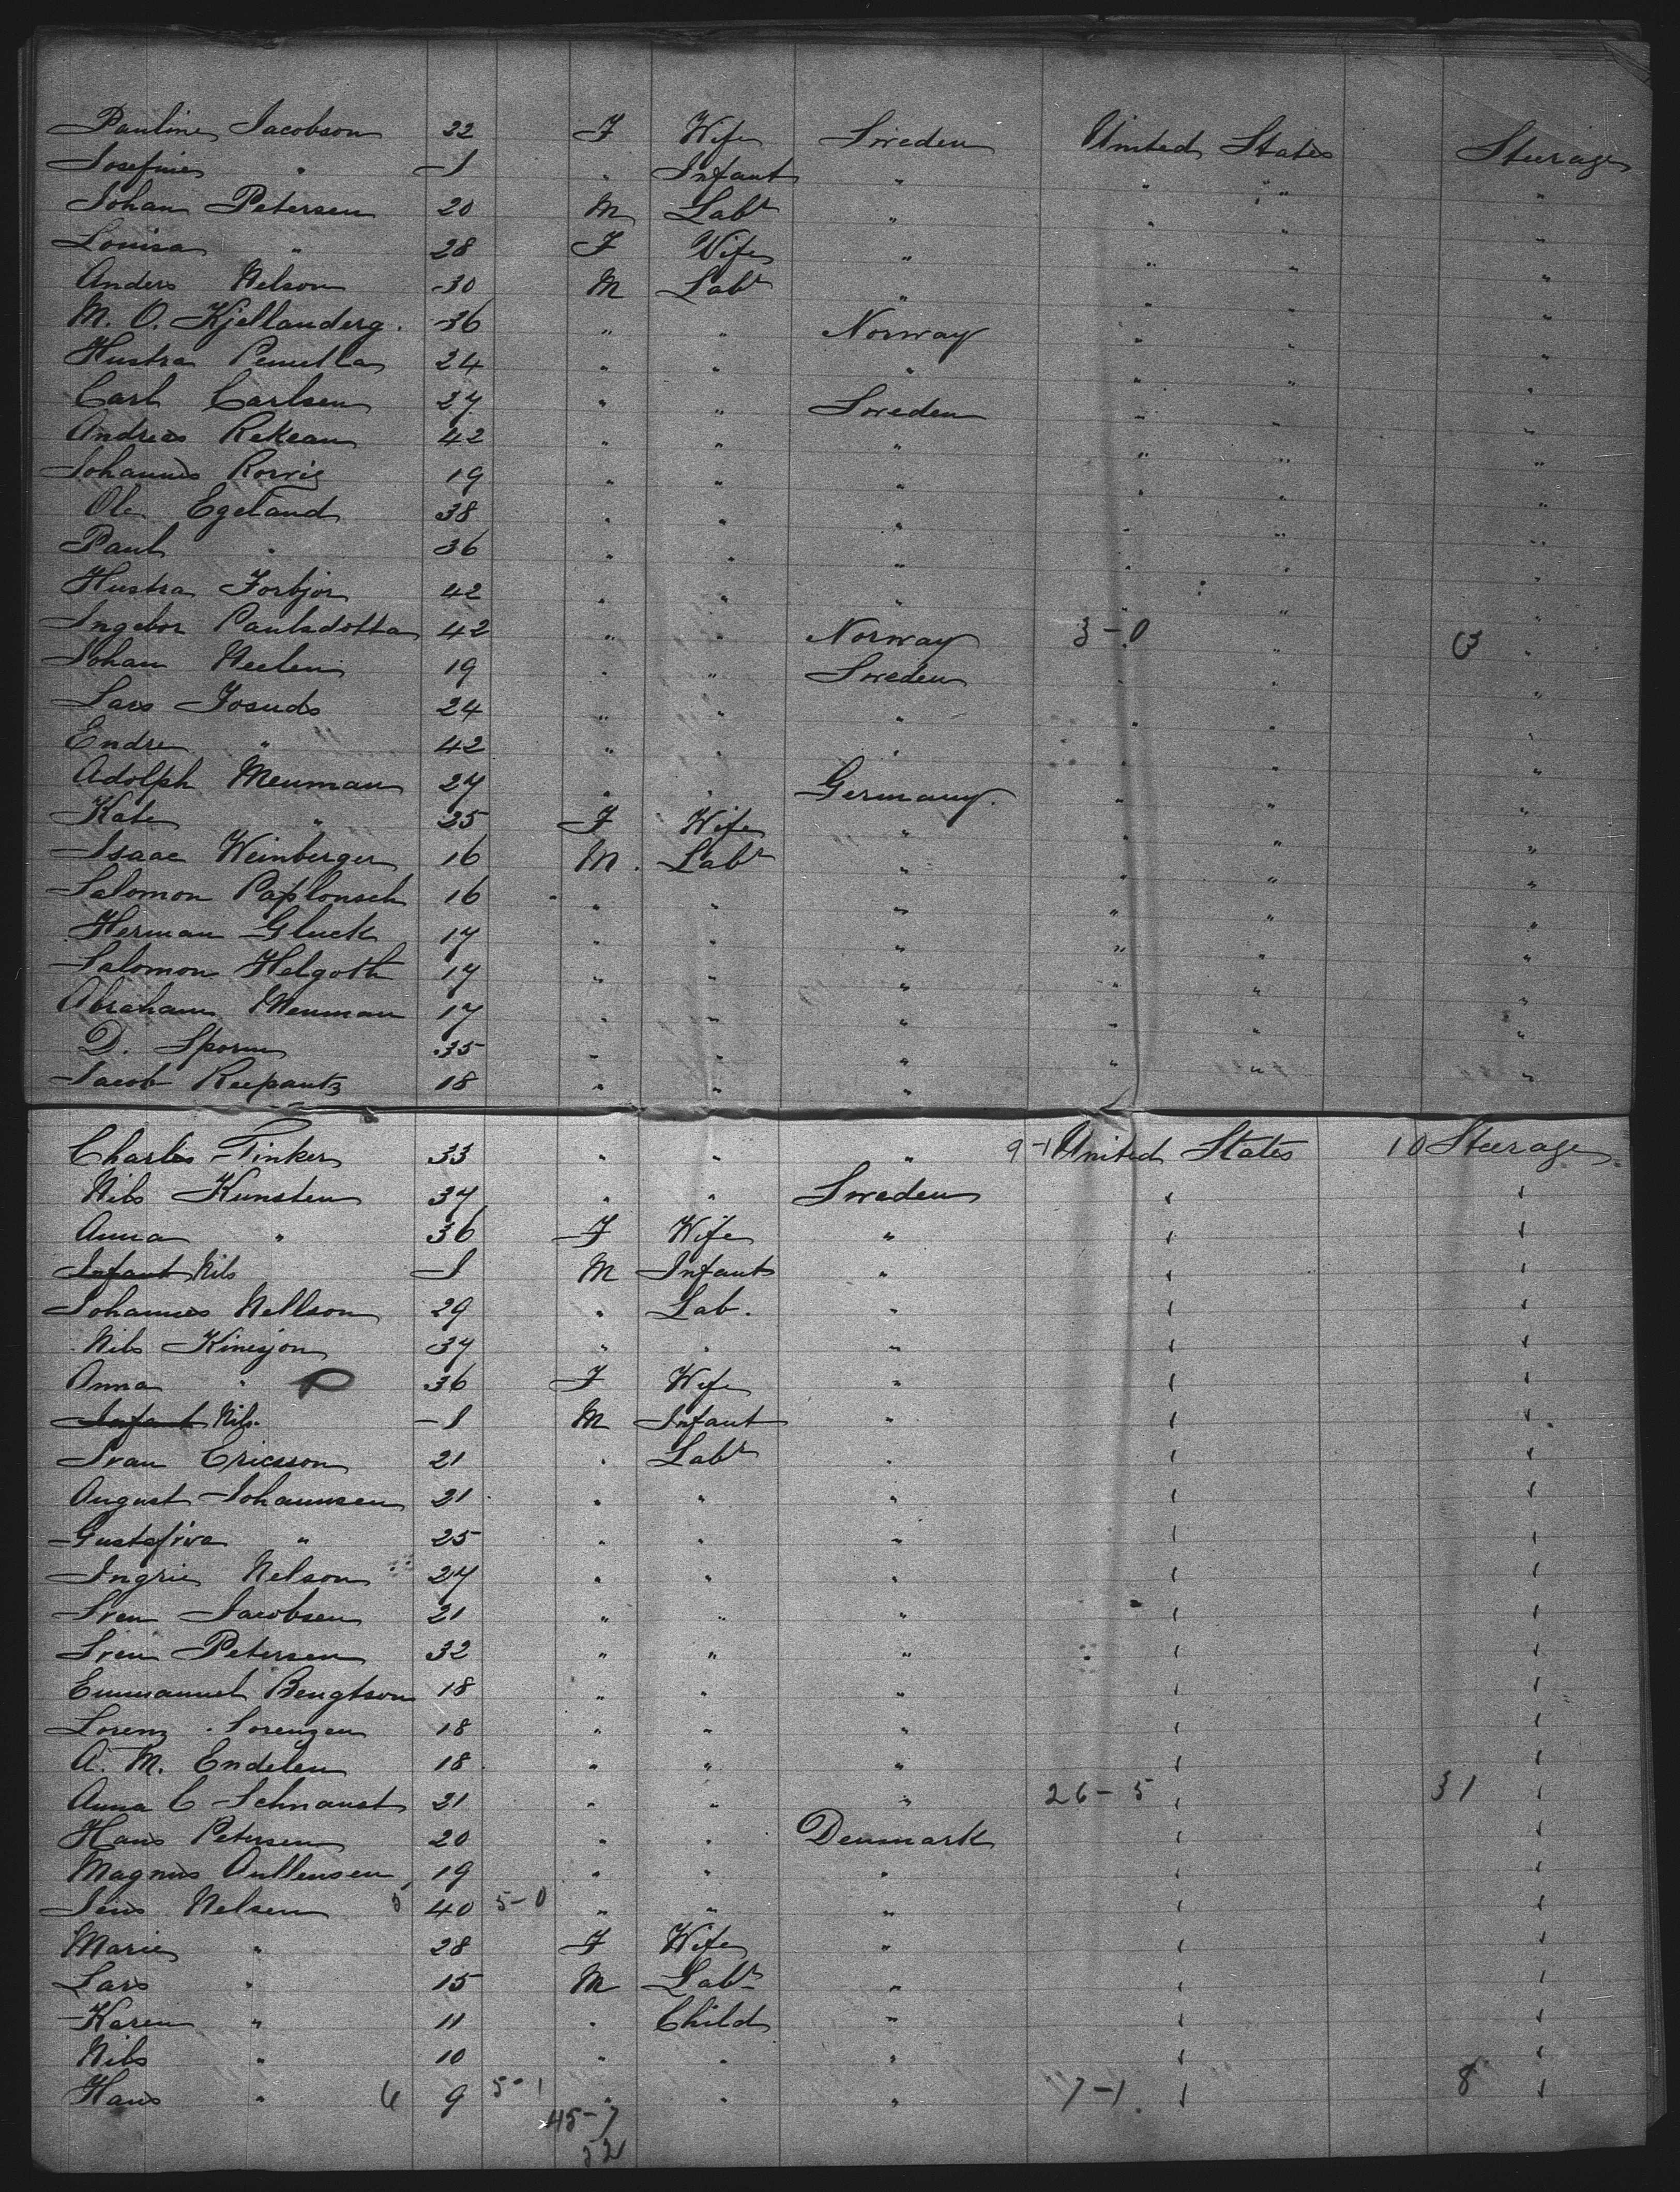 Pauline Jacobson 22 F Wife Sweden United States Steerage
Josefine " 1 " Infant " " " "
Johan Petersen 20 M Labr " " " "
Louisa " 28 F Wife " " " "
Anders Nelson 30 M Labr " " " "
M. O. Kjellanderg. 36 " " Norway " " "
Hustra Pernilla 24 " " " " " "
Carl Carlsen 27 " " Sweden " " "
Andreas Rekean 42 " " " " " "
Johannes Rorvig 19 " " " " " "
Ole Egeland 38 " " " " " "
Paul " 36 " " " " " "
Hustra Torbjor 42 " " " " " "
Ingebor Paulsdotta 42 " " Norway 3-0 " 3 "
Johan Heelen 19 " " Sweden " " "
Lars Josuds 24 " " " " " "
Endre " 42 " " " " " "
Adolph Neuman 27 " " Germany. " " "
Kate " 25 F Wife " " " "
Isaac Weinberger 16 M. Labr " " " "
Salomon Paplonsch 16 " " " " " "
Herman Gluck 17 " " " " " "
Salomon Helgoth 17 " " " " " "
Abraham Neuman 17 " " " " " "
D. Sporn 35 " " " " " "
Jacob Reepantz 18 " " " " " "
Charles Finker 33 " " " 9-1 United States 10 Steerage
Nils Kunsten 37 " " Sweden " "
Anna " 36 F Wife " " "
Infant Nils 1 M Infant " " "
Johannes Nellson 29 " Lab. " " "
Nils Kinesjon 37 " " " " "
Anna " 36 F Wife " " "
Infant Nils 1 M Infant " " "
Svan Ericsson 21 " Labr " " "
August Johannsen 21 " " " " "
Gustafiva " 25 " " " " "
Ingrie Nelson 27 " " " " "
Sven Jacobsen 21 " " " " "
Sven Petersen 32 " " " " "
Emmanuel Bengtson 18 " " " " "
Lorenz Sorenzen 18 " " " " "
A. M. Endelen 18 " " " " "
Anna C Schnanst 21 " " " 26-5 " 31 "
Hans Petersen 20 " " Denmark " "
Magnus Aullensen 19 " " " " "
Jens Nelsen 5 40 5-0 " " " " "
Marie " 28 F Wife " " "
Lars " 15 M Labr " " "
Karen " 11 " Child " " "
Nils " 10 " " " " "
Hans " 6 9 5-1 " " " 7-1 " 8 "
45-7
52